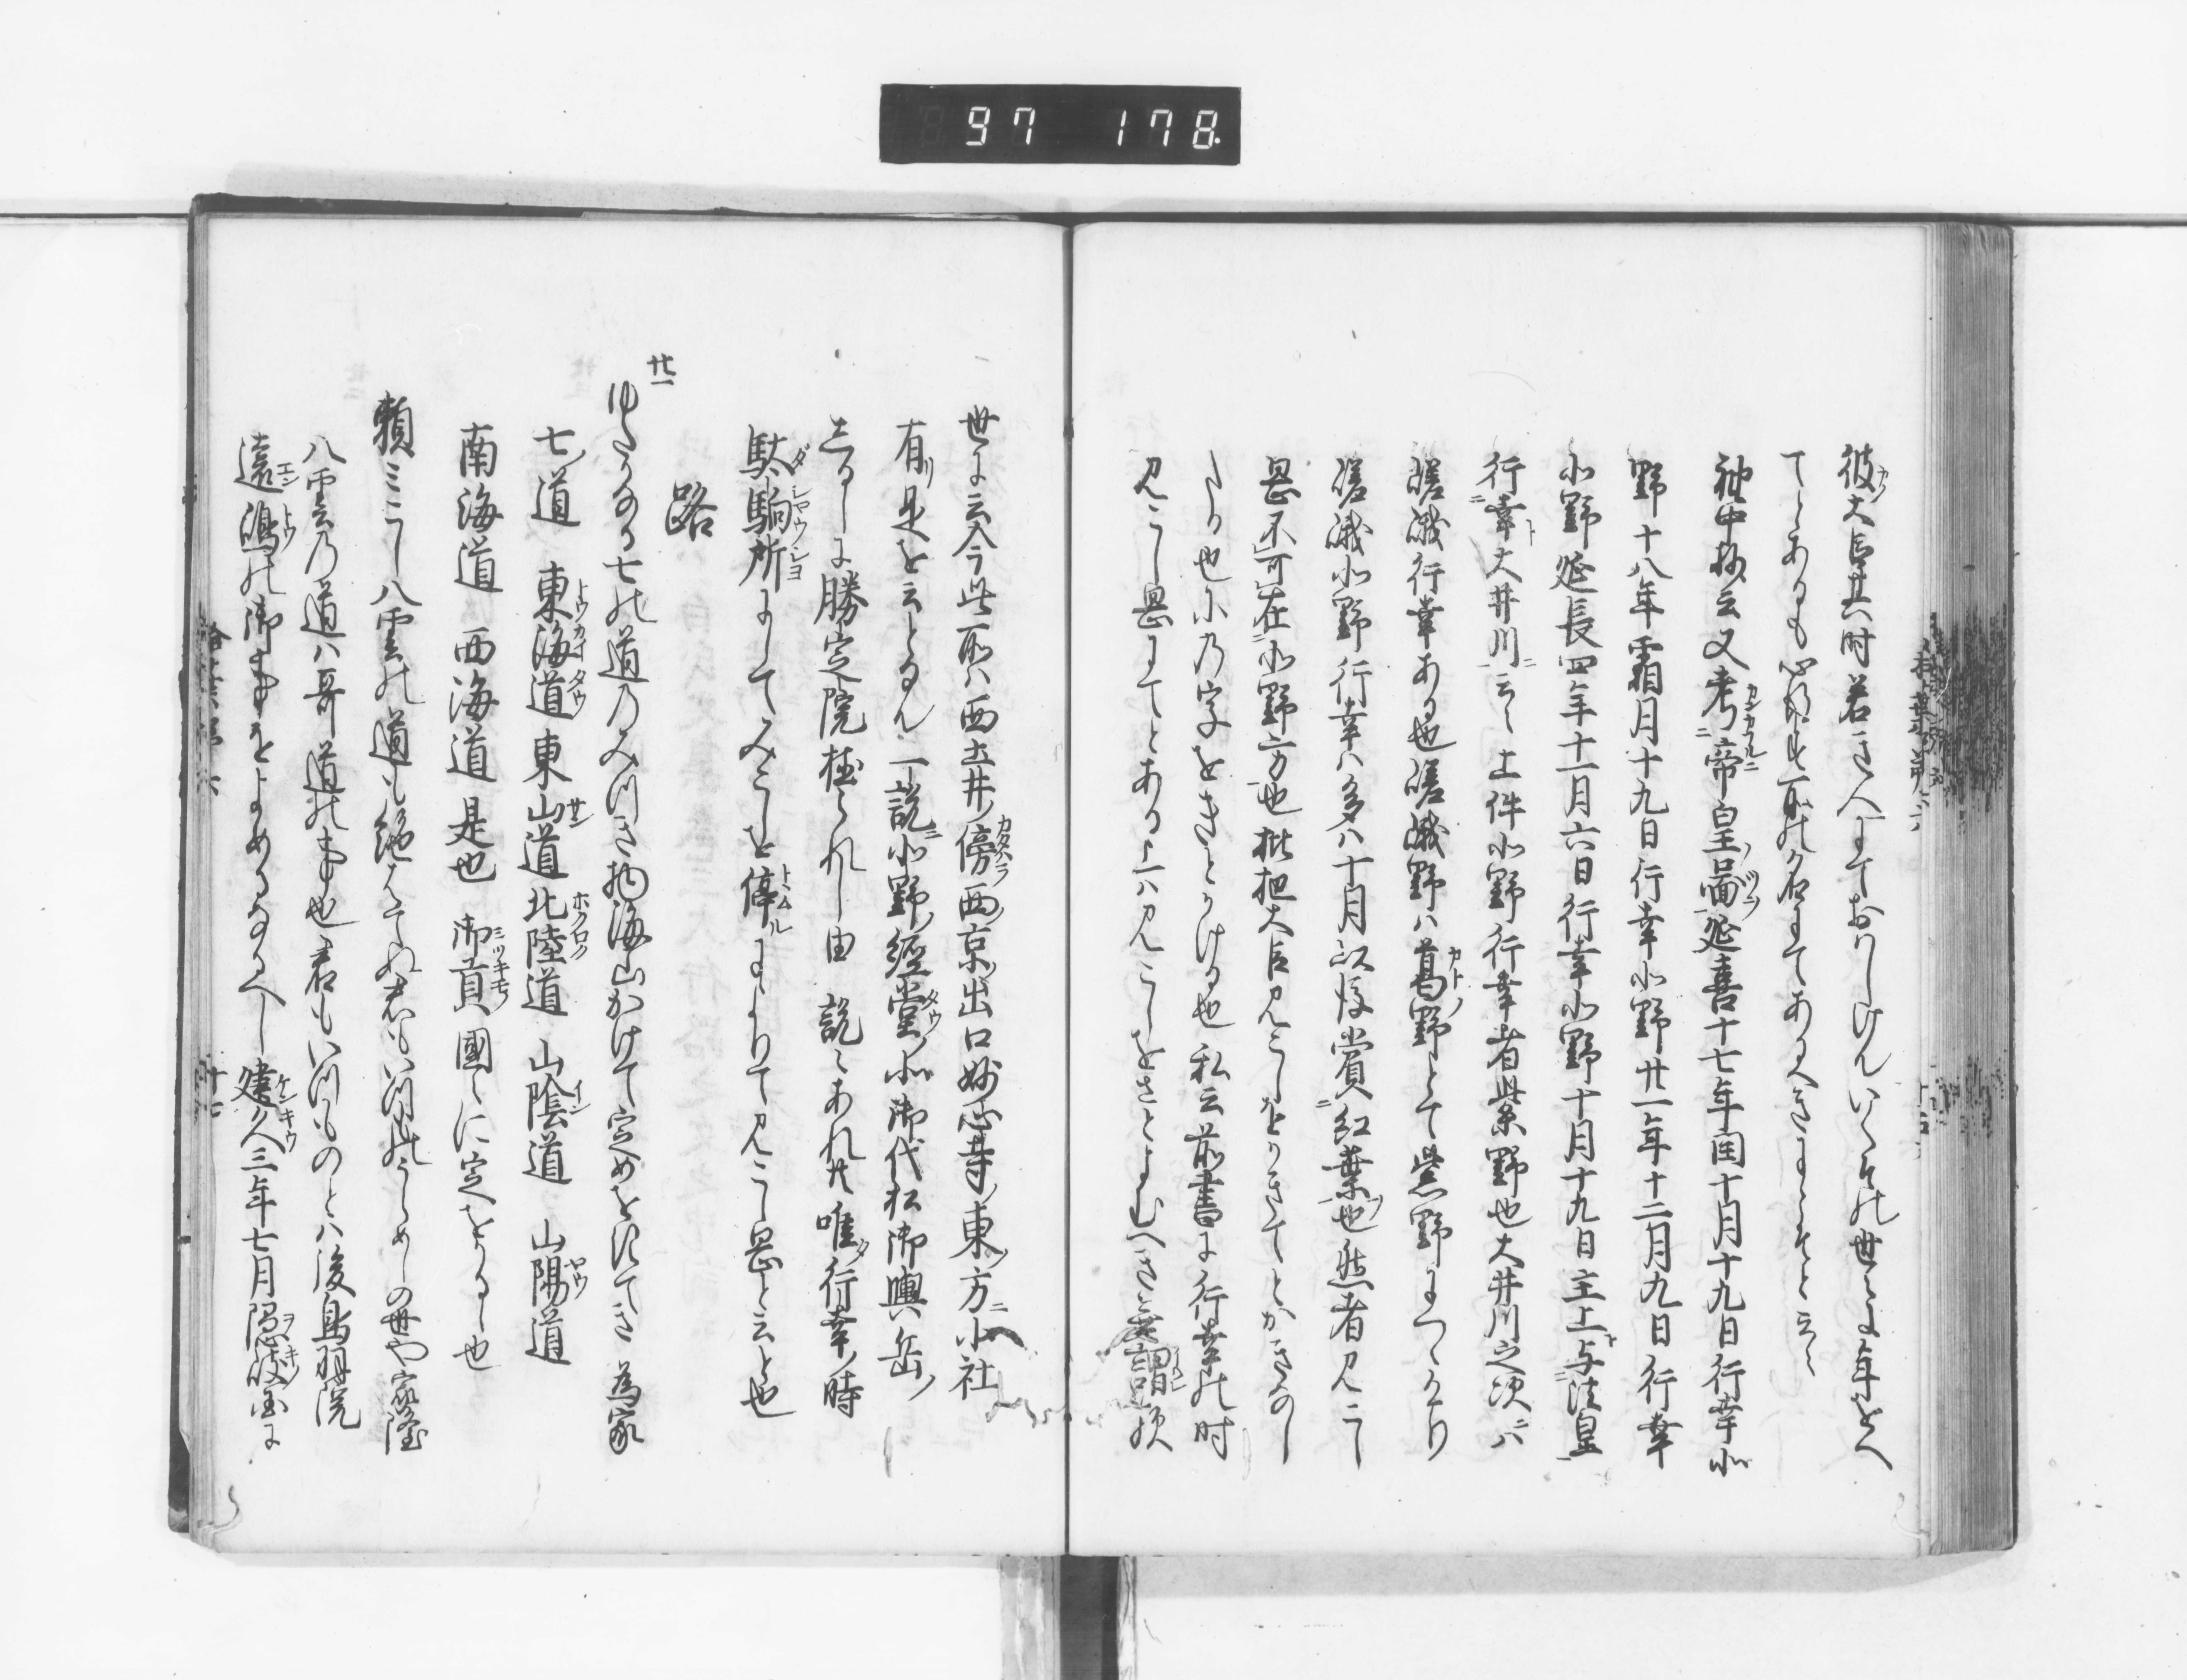 97 178
彼大臣其時若き人にておはしけんいくその世々に年をへ
てとあるも心得す所の名にてあるへきにこそと云々
袖中抄云又考帝皇啚延喜十七年閏十月十九日行幸小
野十八年霜月十九日行幸小野廿一年十二月九日行幸
小野延長四年十一月六日行幸小野十月十九日主上与法皇
行幸大井川云々上件小野行幸者柴野也大井川之次ニハ
嵯峨行幸ある也嵯峨野ハ葛野とて紫野につゝけり
嵯峨小野行幸ハ多ハ十月以後賞紅葉也然者みこし
畳不可在小野方也批把大臣みこしをかきてとかきなし
たる也小乃字をきとかける也私云前書に行幸の時
みこし畳にてとある上ハみこしをさとよむへき無謂歟
世に云今此所ハ西土井傍西京出口妙心寺東方ニ小社
有是を云となん一説ニ小野経堂小御代松御輿岳
としるしに勝定院植られし由説々あれ共唯行幸時
駄駒所にしてみこしを停によりてみこし畳と云と也
路
廿一
ゆたかなる七の道のみつき物海山かけて定めをきてき 為家
七道 東海道 東山道 北陸道 山陰道 山陽道
南海道 西海道 是也 御貢國々に定をかるゝ也
頼みこし八雲の道も絶はてぬ君もいつ湊のうらめしの世や 家隆
八雲乃道ハ哥道の事也君もいつものとハ後鳥羽院
遠嶋の御事をよめるなるへし建久三年七月隠岐国に